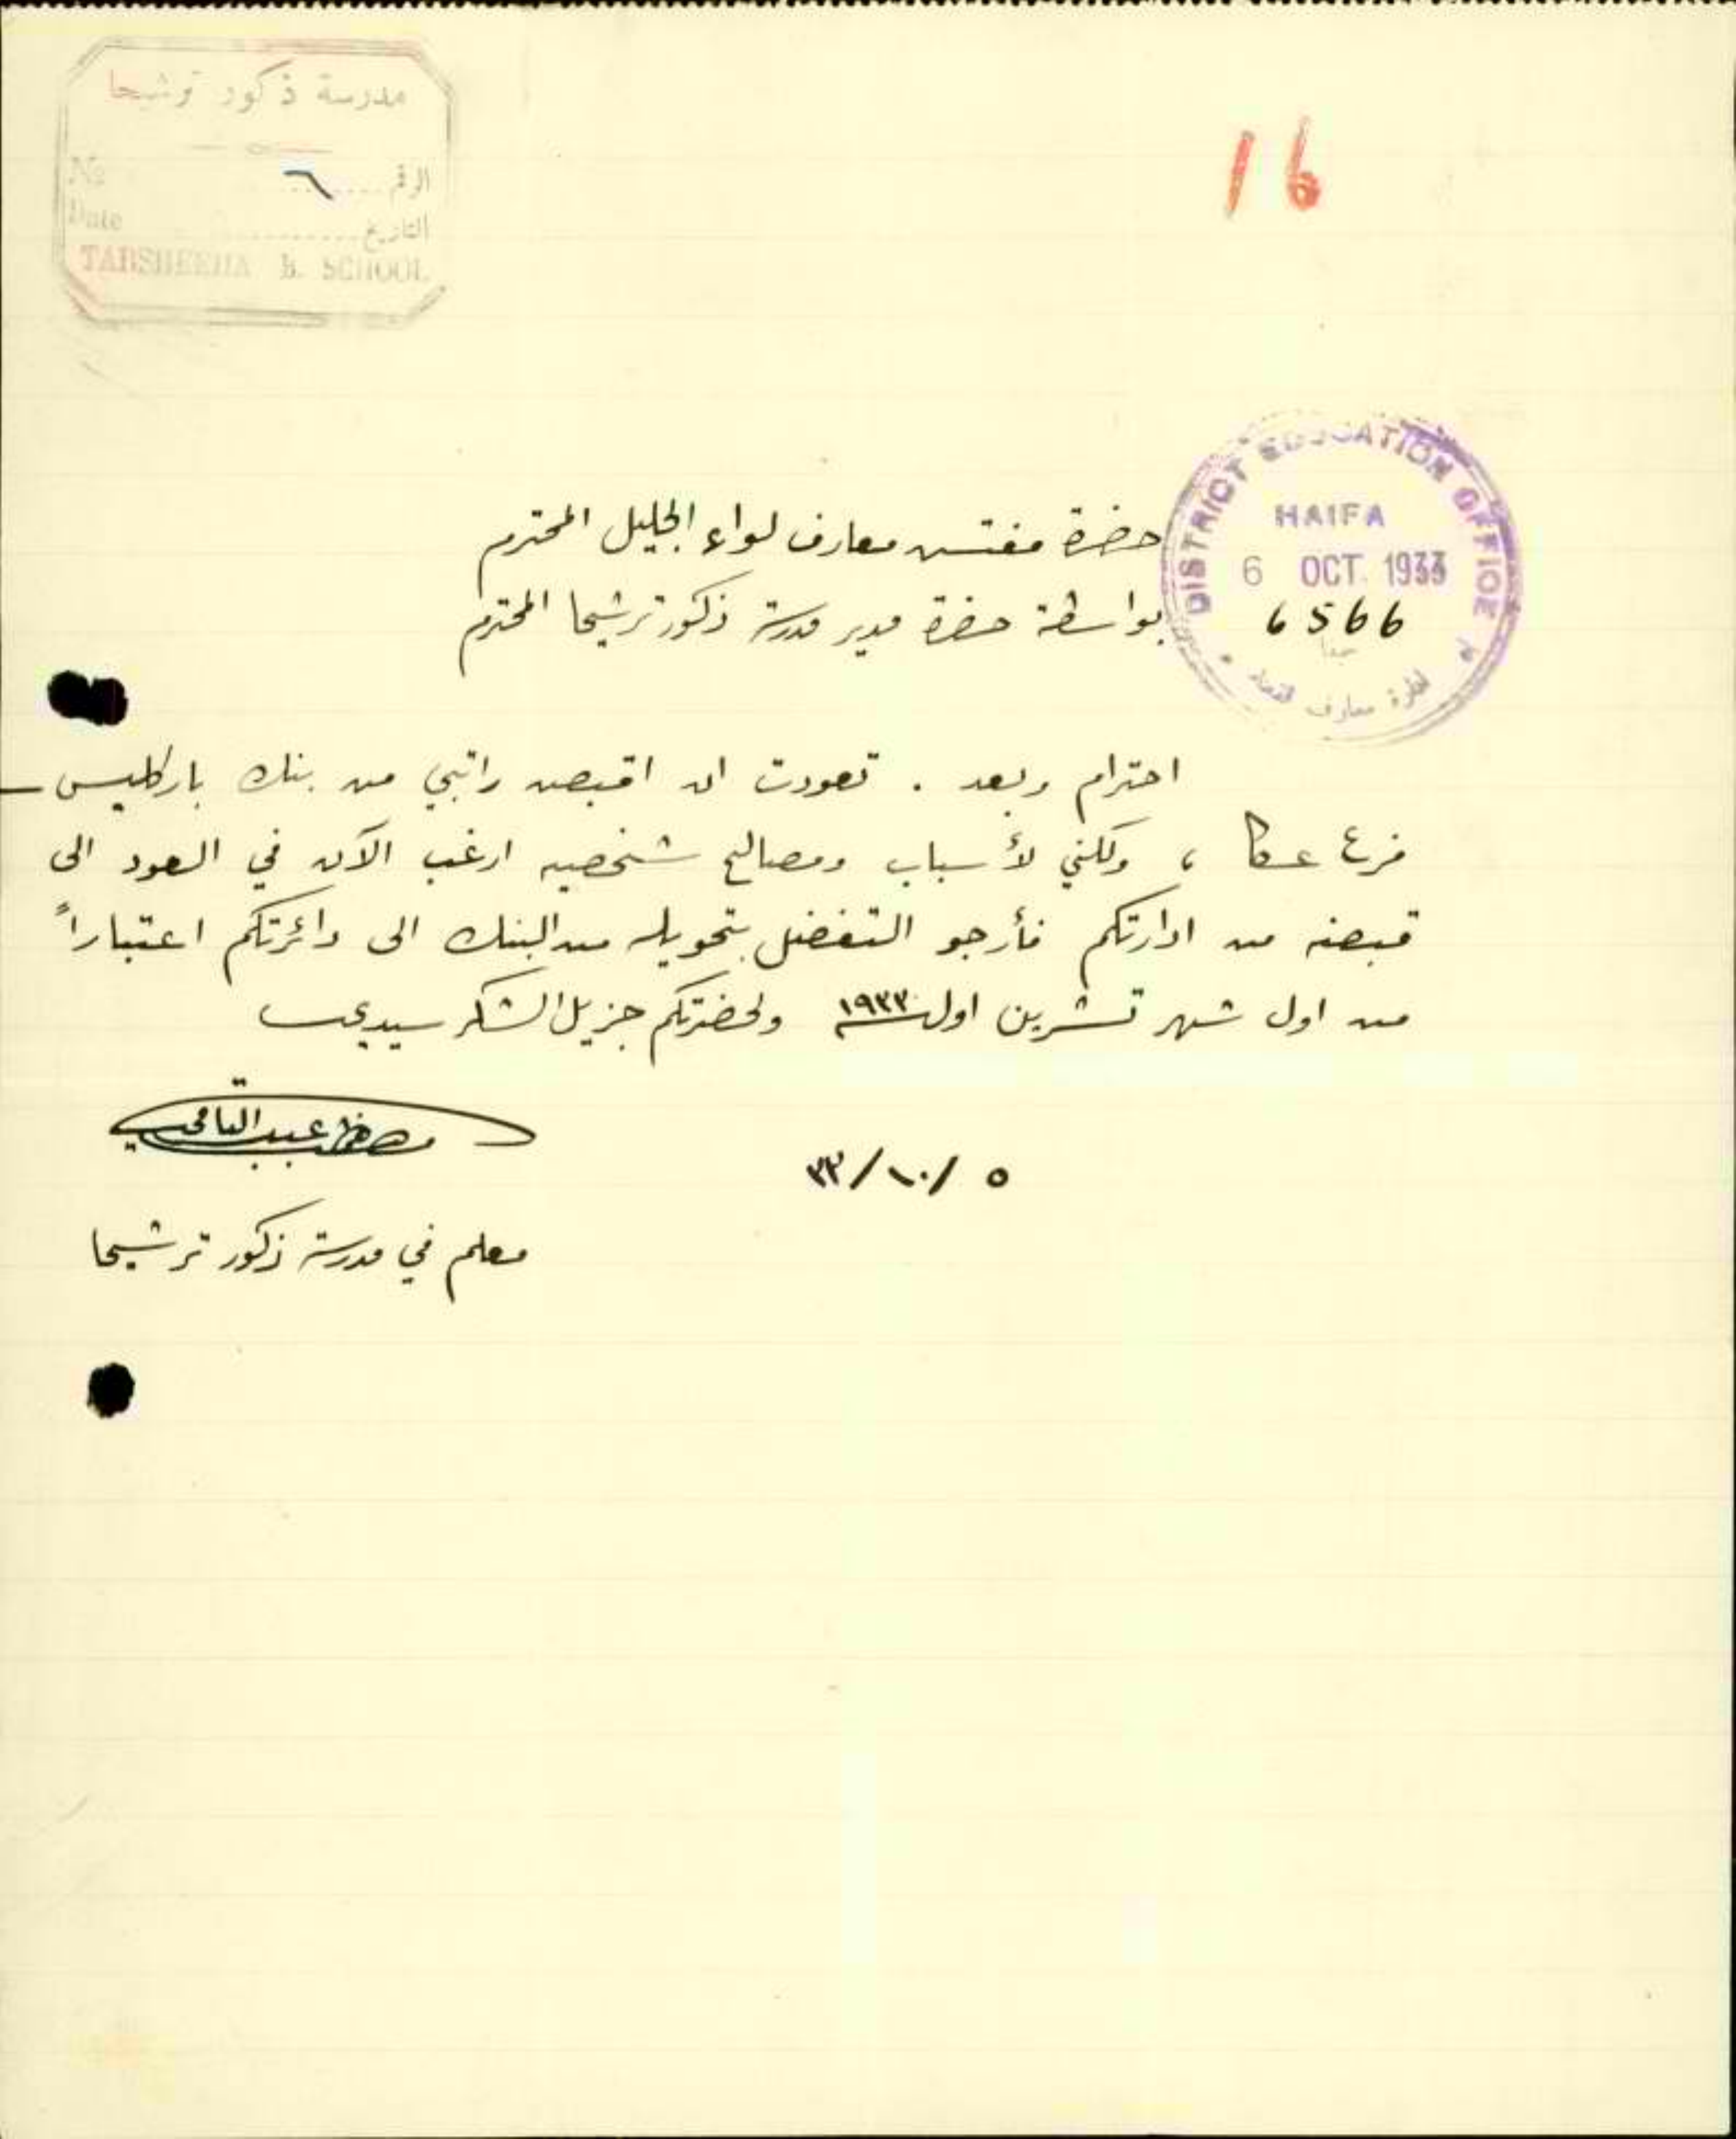 مدرسة ذكور ترشيحا
No ٦ الرقم
Date التاريخ
TARSHEEHA B. SCHOOL
16
DISTRICT EDUCATION OFFICE
HAIFA
6 OCT. 1933
6566
حيفا
حضرة مفتش معارف لواء الجليل المحترم
بواسطة حضرة مدير مدرسة ذكور ترشيحا المحترم
احترام وبعد . تعودت ان اقبض راتبي من بنك باركليس –
فرع عكا ، ولكني لأسباب ومصالح شخصيه ارغب الآن في العود الى
قبضه من ادارتكم فأرجو التفضل بتحويله من البنك الى دائرتكم اعتباراً
من اول شهر تشرين اول سنة ١٩٣٣ ولحضرتكم جزيل الشكر سيدي
عبد
٥ /١٠/ ٣٣
معلم في مدرسة ذكور ترشيحا